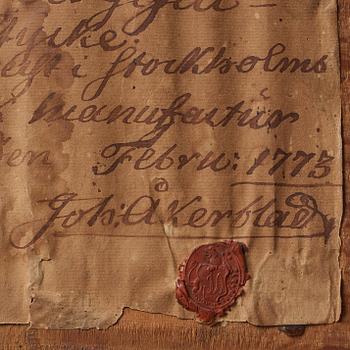 tycke.
i Stockholms
Manufactur
den Febru: 1773
Joh: Åkerblad